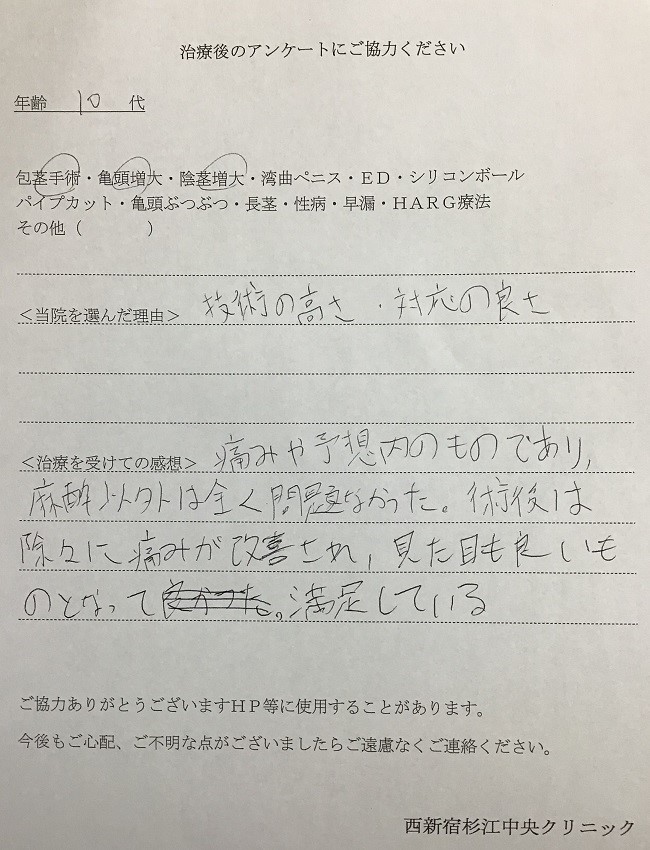 治療後のアンケートにご協力ください
年齢 10 代
包茎手術・亀頭増大・陰茎増大・湾曲ペニス・ED・シリコンボール
パイプカット・亀頭ぶつぶつ・長茎・性病・早漏・HARG療法
その他（　　　）
<当院を選んだ理由> 技術の高さ・対応の良さ
<治療を受けての感想> 痛みや予想内のものであり,
麻酔以外は全く問題なかった。術後は
除々に痛みが改善され, 見た目も良いも
のとなって良かった。満足している
ご協力ありがとうございますHP等に使用することがあります。
今後もご心配、ご不明な点がございましたらご遠慮なくご連絡ください。
西新宿杉江中央クリニック